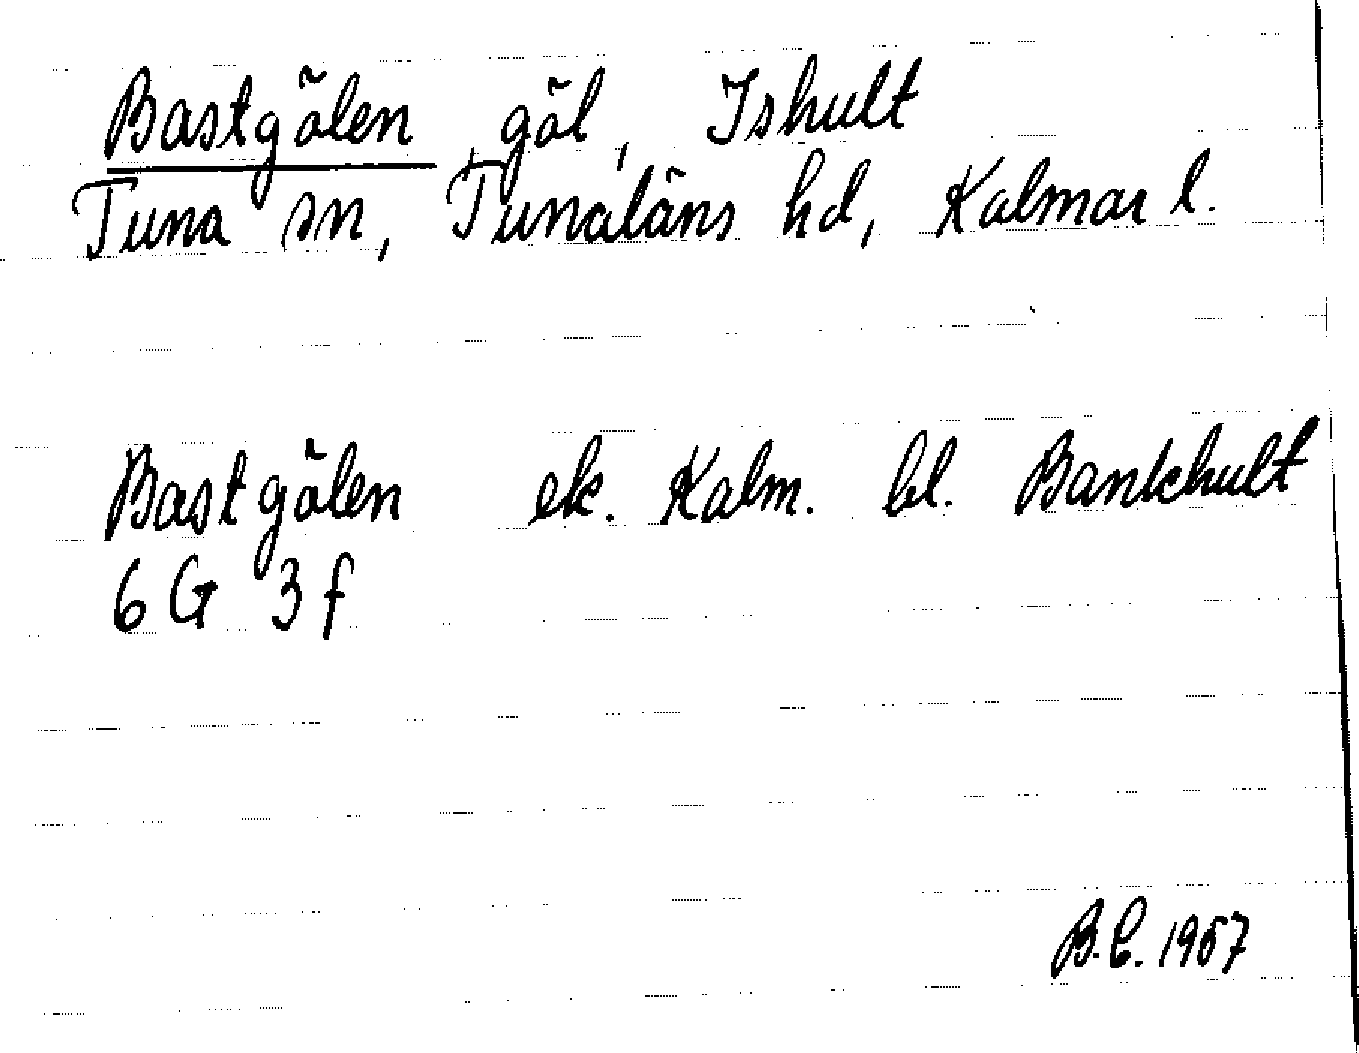 Bastgölen, göl, Ishult
Tuna sn, Tunaläns hd, Kalmar l.
Bastgölen ek. Kalm. bl. Bankhult
6 G 3 f
B.C. 1957